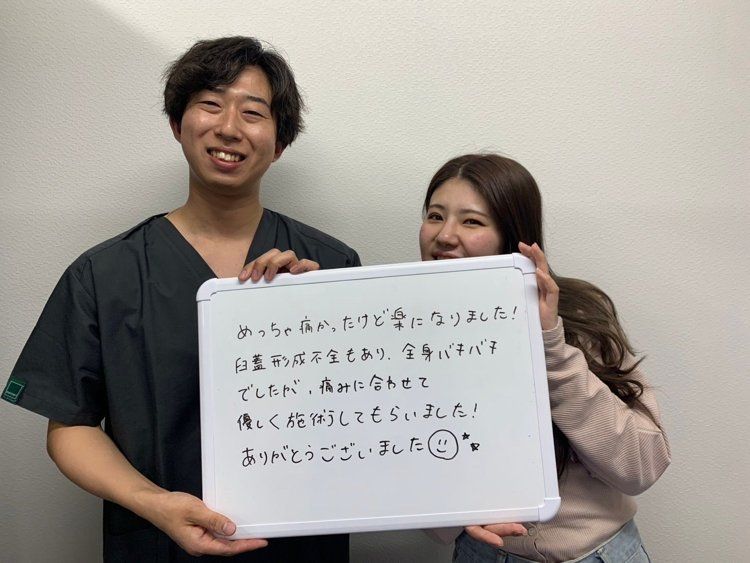 めっちゃ痛かったけど楽になりました！
臼蓋形成不全もあり、全身バキバキ
でしたが、痛みに合わせて
優しく施術してもらいました！
ありがとうございました